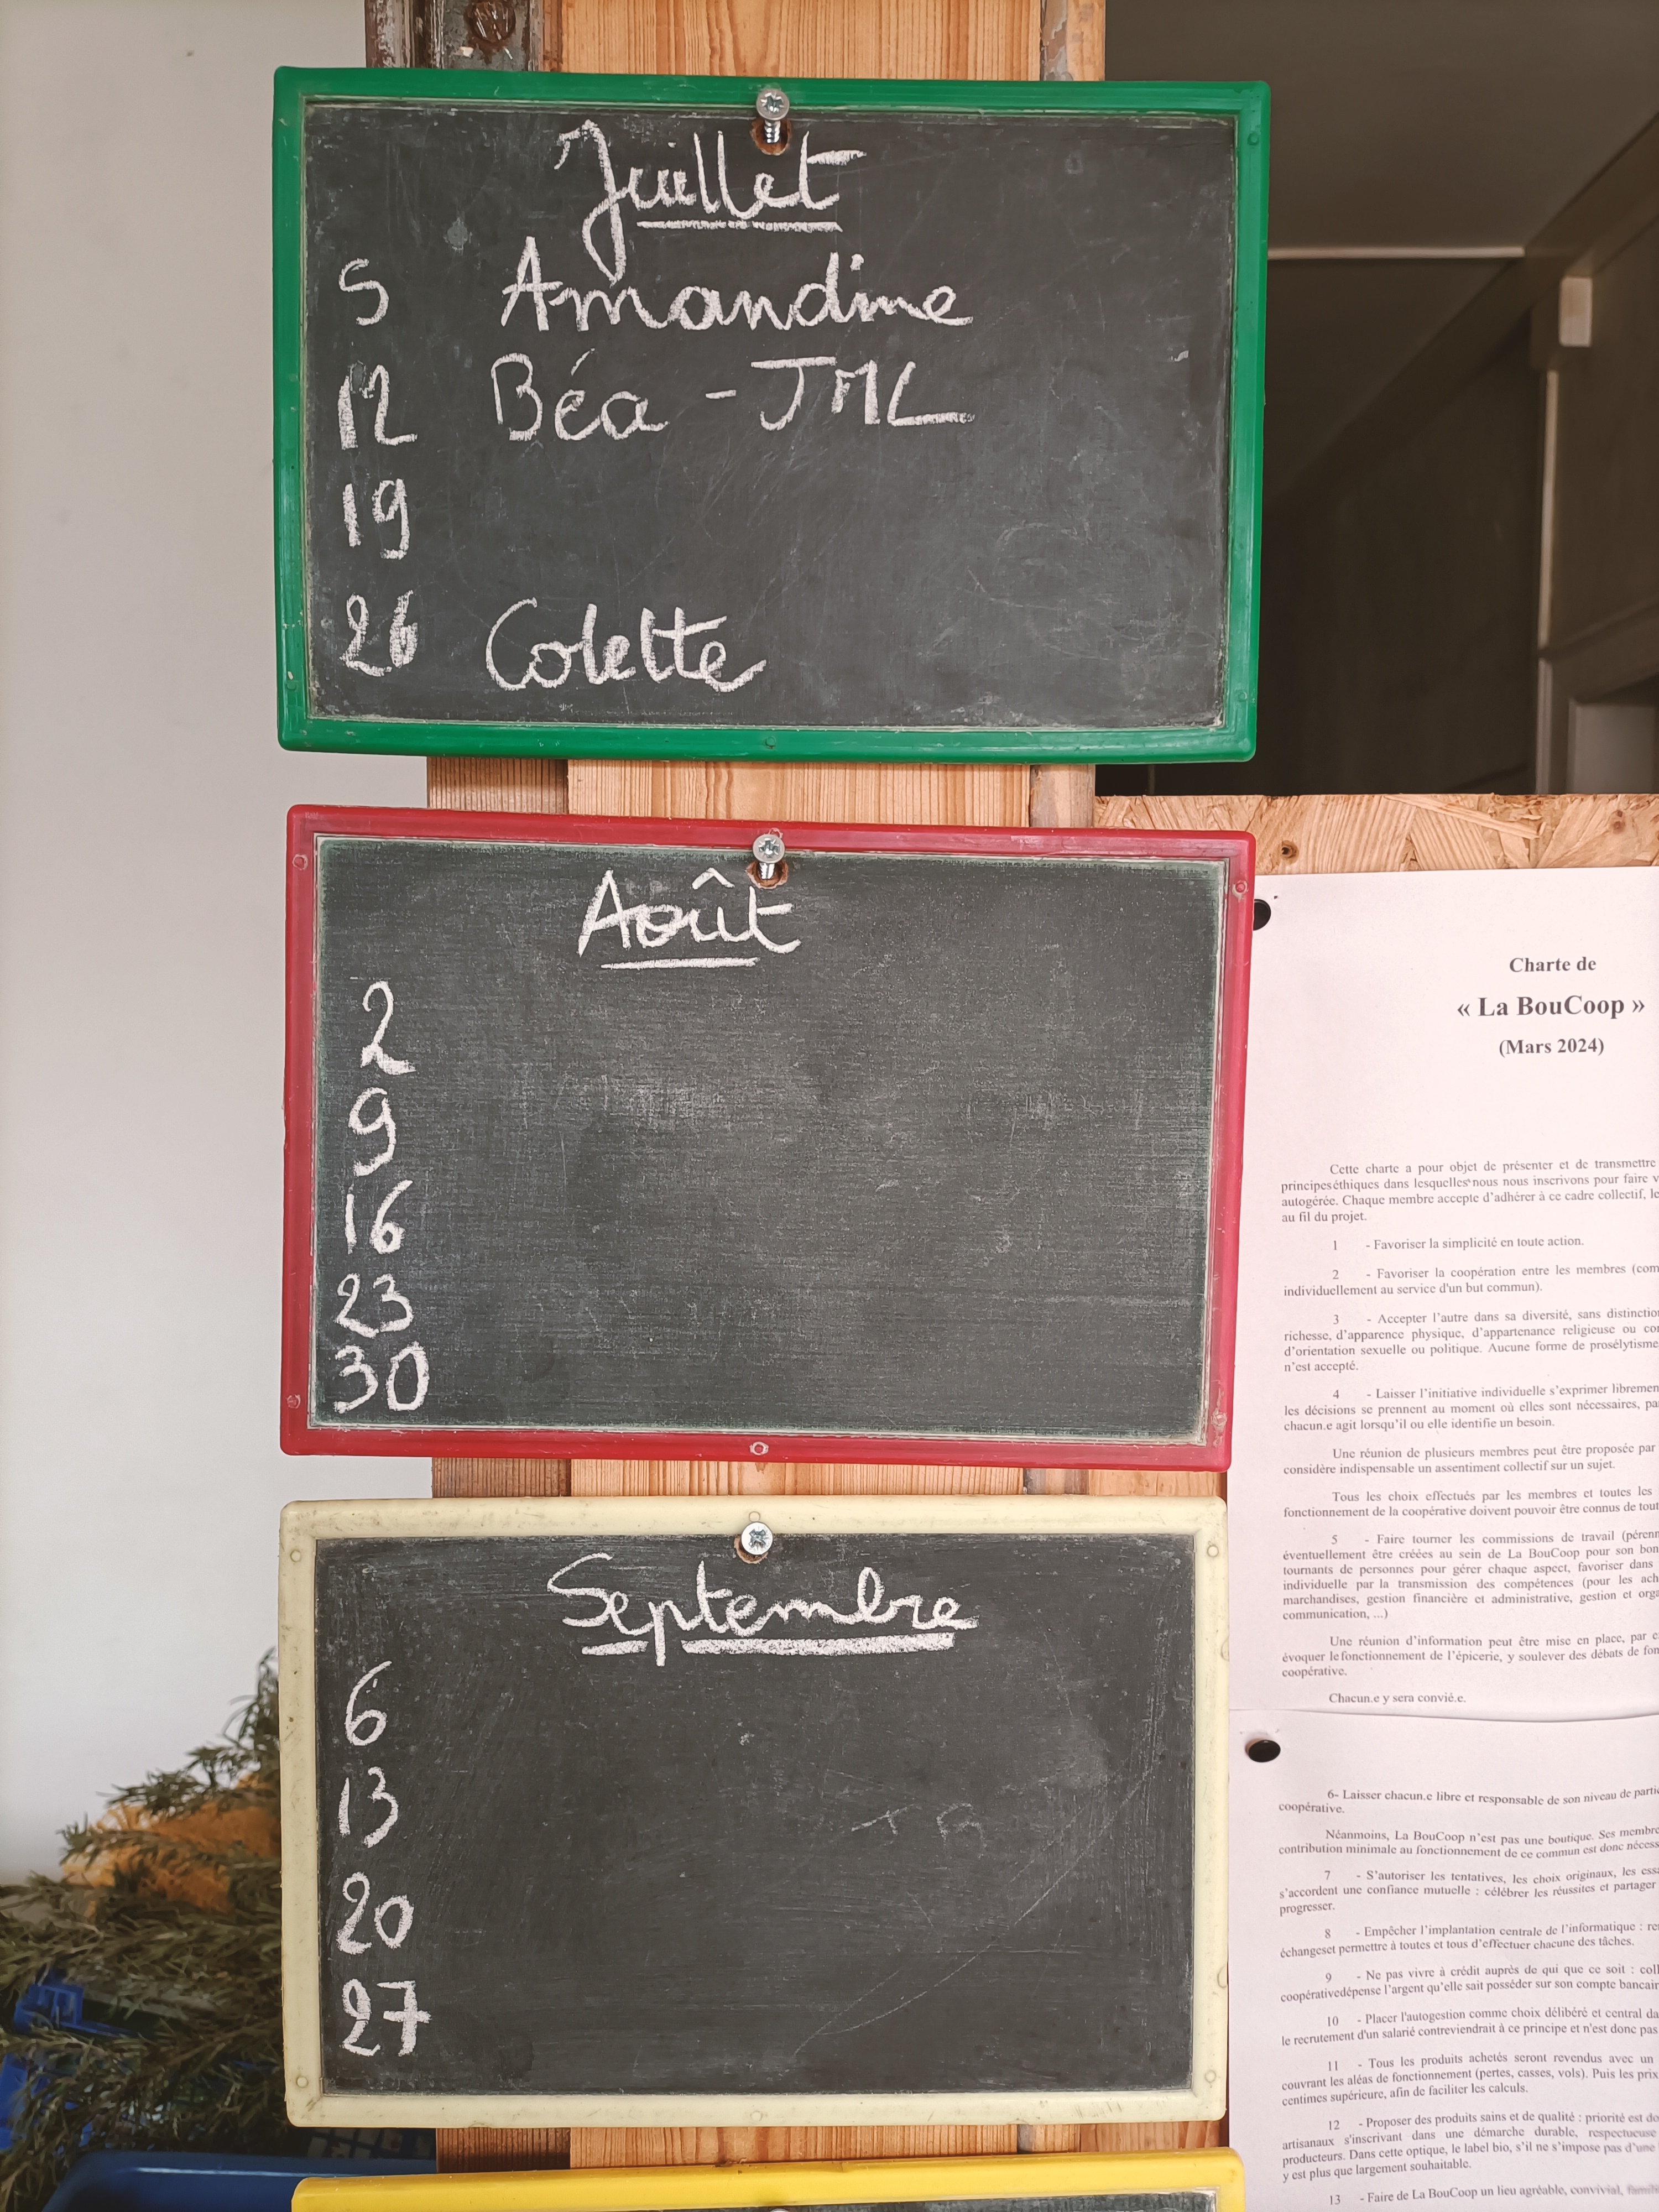 Juillet
5 Amandine
12 Béa - JML
19
26 Colette
Août
2
9
16
23
30
Septembre
6
13
20
27
Charte de
« La BouCoop »
(Mars 2024)
Cette charte a pour objet de présenter et de transmettre
principes éthiques dans lesquelles nous nous inscrivons pour faire
autogérée. Chaque membre accepte d'adhérer à ce cadre collectif,
au fil du projet.
1 - Favoriser la simplicité en toute action.
2 - Favoriser la coopération entre les membres
individuellement au service d'un but commun).
3 - Accepter l'autre dans sa diversité, sans
richesse, d'apparence physique, d'appartenance religieuse ou
d'orientation sexuelle ou politique. Aucune forme de prosélytisme
n'est accepté.
4 - Laisser l'initiative individuelle s'exprimer
les décisions se prennent au moment où elles sont nécessaires,
chacun.e agit lorsqu'il ou elle identifie un besoin.
Une réunion de plusieurs membres peut être proposée par
considère indispensable un assentiment collectif sur un sujet.
Tous les choix effectués par les membres et toutes les
fonctionnement de la coopérative doivent pouvoir être connus de
5 - Faire tourner les commissions de travail
éventuellement être créées au sein de La BouCoop pour son bon
tournants de personnes pour gérer chaque aspect, favoriser dans
individuelle par la transmission des compétences (pour les
marchandises, gestion financière et administrative, gestion et
communication, ...)
Une réunion d'information peut être mise en place, par
évoquer le fonctionnement de l'épicerie, y soulever des débats de
coopérative.
Chacun.e y sera convié.e.
6- Laisser chacun.e libre et responsable de son niveau de
coopérative.
Néanmoins, La BouCoop n'est pas une boutique. Ses
contribution minimale au fonctionnement de ce commun est donc
7 - S'autoriser les tentatives, les choix originaux, les
s'accordent une confiance mutuelle : célébrer les réussites et partager
progresser.
8 - Empêcher l'implantation centrale de l'informatique :
échangeset permettre à toutes et tous d'effectuer chacune des tâches.
9 - Ne pas vivre à crédit auprès de qui que ce soit :
coopérativedépense l'argent qu'elle sait posséder sur son compte
10 - Placer l'autogestion comme choix délibéré et central
le recrutement d'un salarié contreviendrait à ce principe et n'est donc pas
11 - Tous les produits achetés seront revendus avec un
couvrant les aléas de fonctionnement (pertes, casses, vols). Puis les
centimes supérieure, afin de faciliter les calculs.
12 - Proposer des produits sains et de qualité : priorité est
artisanaux s'inscrivant dans une démarche durable, respectueuse
producteurs. Dans cette optique, le label bio, s'il ne s'impose pas d'une
y est plus que largement souhaitable.
13 - Faire de La BouCoop un lieu agréable, convivial,